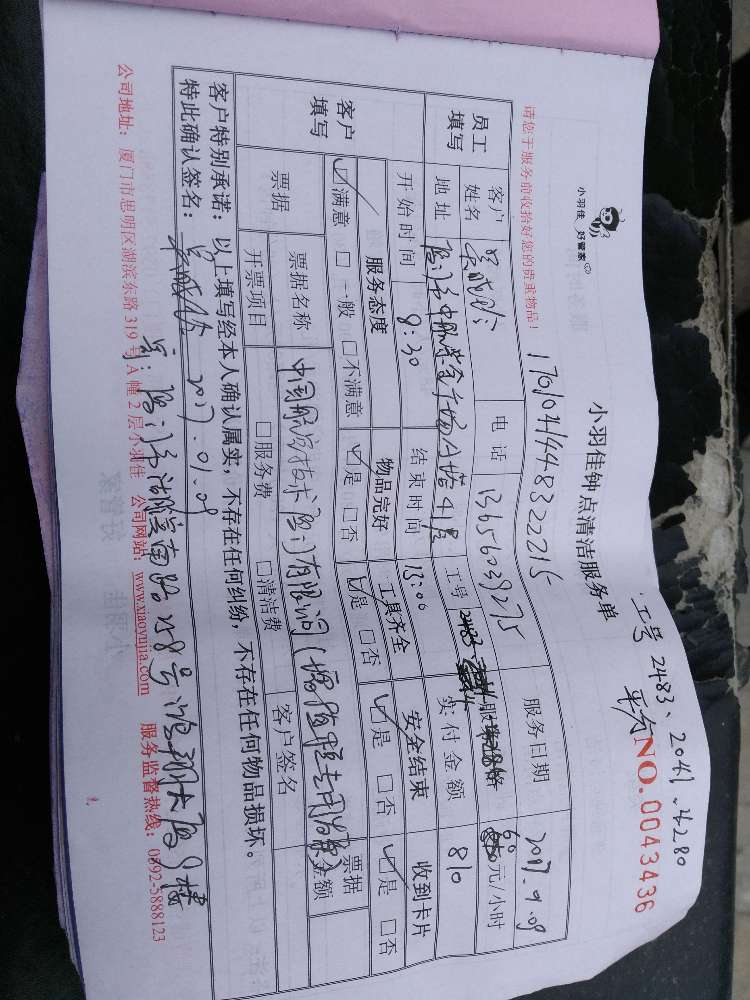 小羽佳 好管家
小羽佳钟点清洁服务单
工号2483、2041、4280
平分
NO.0043436
请您于服务前收拾好您的贵重物品!
17010414483 22215
员工填写
客户姓名
电话
13656039275
服务日期
2017.1.09
地址
中航紫金广场A塔41层
工号
2483、
60元/小时
开始时间
8:30
结束时间
13:00
实付金额
810
客户填写
服务态度
物品完好
工具齐全
安全结束
收到卡片
☑满意 □一般 □不满意
☑是 □否
☑是 □否
☑是 □否
☑是 □否
票据
票据名称
中国航空技术厦门有限公司(增值税专用发票
票据金额
开票项目
□服务费
□清洁费
客户签名
客户特别承诺:以上填写经本人确认属实,不存在任何纠纷,不存在任何物品损坏。
特此确认签名:
2017.01.09
厦门市湖滨南路258号鸿翔大厦
公司地址:厦门市思明区湖滨东路319号A幢2层小羽佳 公司网站:www.xiaoyujia.com 服务监督热线:0592-5888123